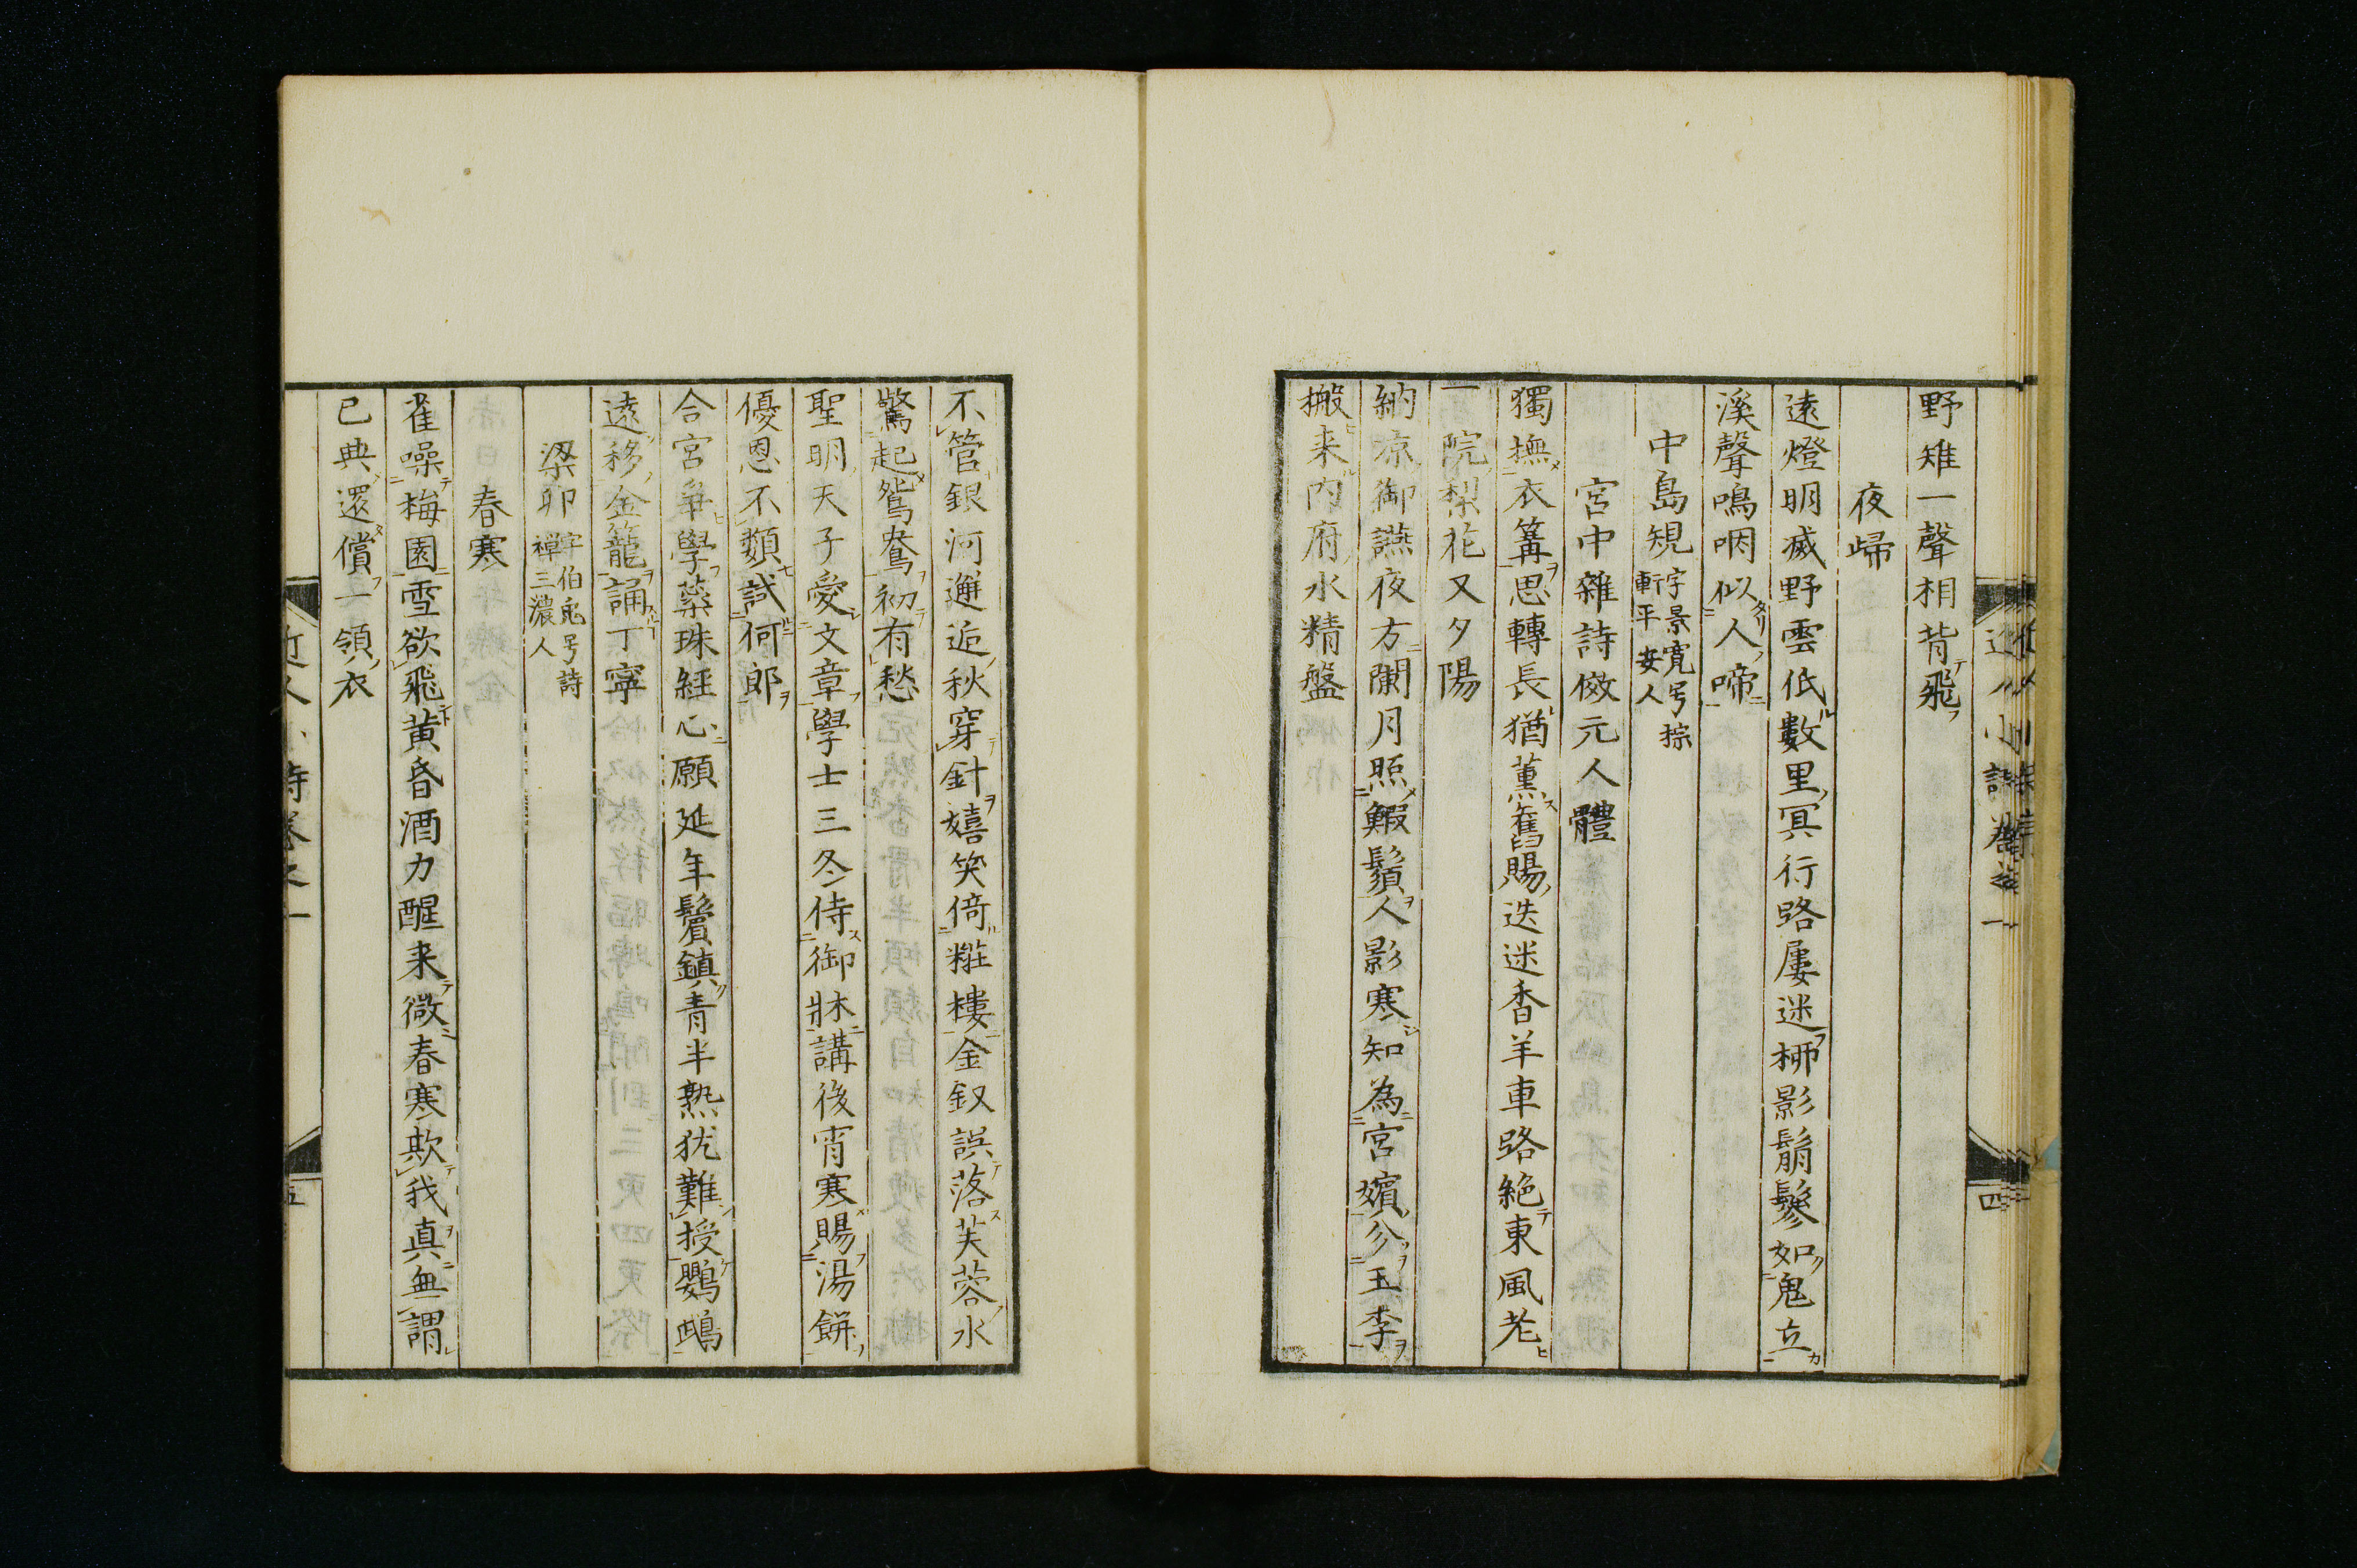 野雉一聲相背飛
夜歸
遠燈明滅野雲低數里冥行路屢迷柳影鬅鬙如鬼立
溪聲鳴咽似人啼
中島規字景寬号棕軒平安人
宮中雜詩傚元人體
獨撫衣篝思轉長猶薰舊賜迭迷香羊車路絶東風老
一院梨花又夕陽
納凉御讌夜方闌月照鰕鬚人影寒知為宮嬪分玉李
搬来内府水精盤
四
不管銀河邂逅秋穿針嬉笑倚糚樓金釵誤落芙蓉水
驚起鴛鴦初有愁
聖明天子愛文章學士三冬侍御牀講後宵寒賜湯餅
優恩不類試何郎
合宮爭學蘂珠經心願延年鬢鎮青半熟猶難授鸚鵡
遠移金籠誦丁寧
梁卯字伯兎号詩禪三濃人
春寒
雀噪梅園雪欲飛黄昏酒力醒来微春寒欺我真無謂
已典還償一領衣
近人小詩卷之一
五